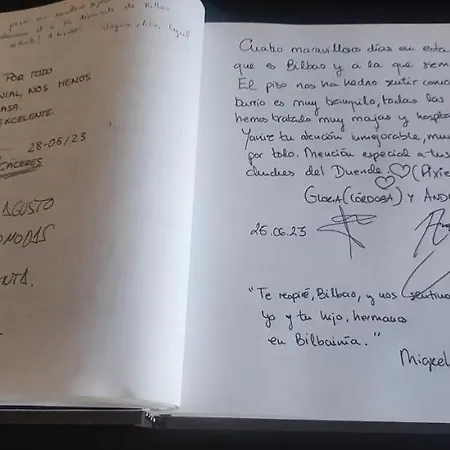 para
Bilbao
POR TODO
NIAL, NOS HEMOS
ASA.
EXCELENTE.
28-05/23
CÁCERES
AGOSTO
MODAS
NTA.
Cuatro maravillosos días en esta
que es Bilbao y a la que siem
El piso nos ha hecho sentir como
barrio es muy tranquilo, todas las
hemos tratado muy majas y hospita
Yanire tu atención inmejorable, mu
por todo. Mención especial a tus
chuches del Duende ♡ (Pixie
♡
GLORIA (CÓRDOBA) Y AND
25.06.23
"Te respiré, Bilbao, y nos sentimo
yo y tu hijo, hermanos
en Bilbainía."
Miguel